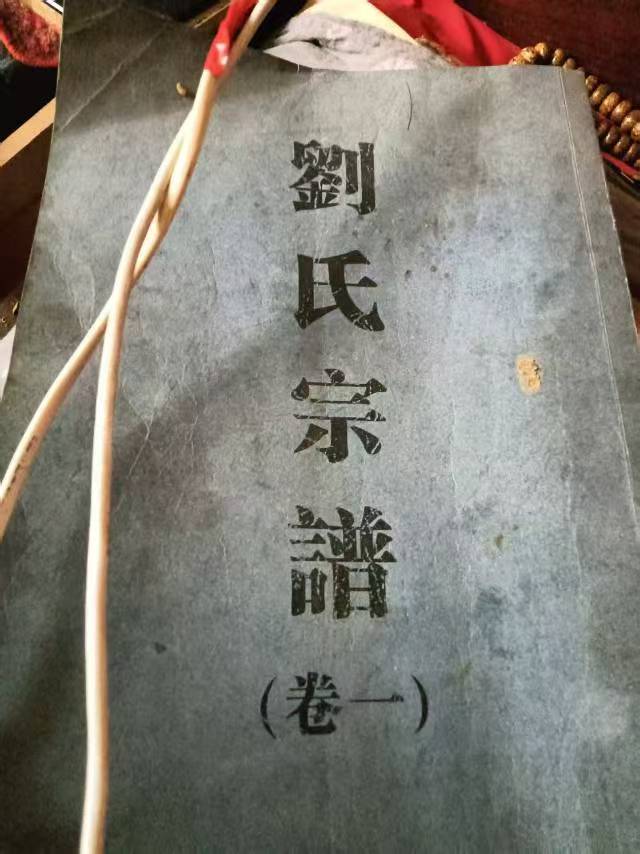 劉氏宗譜
(卷一)